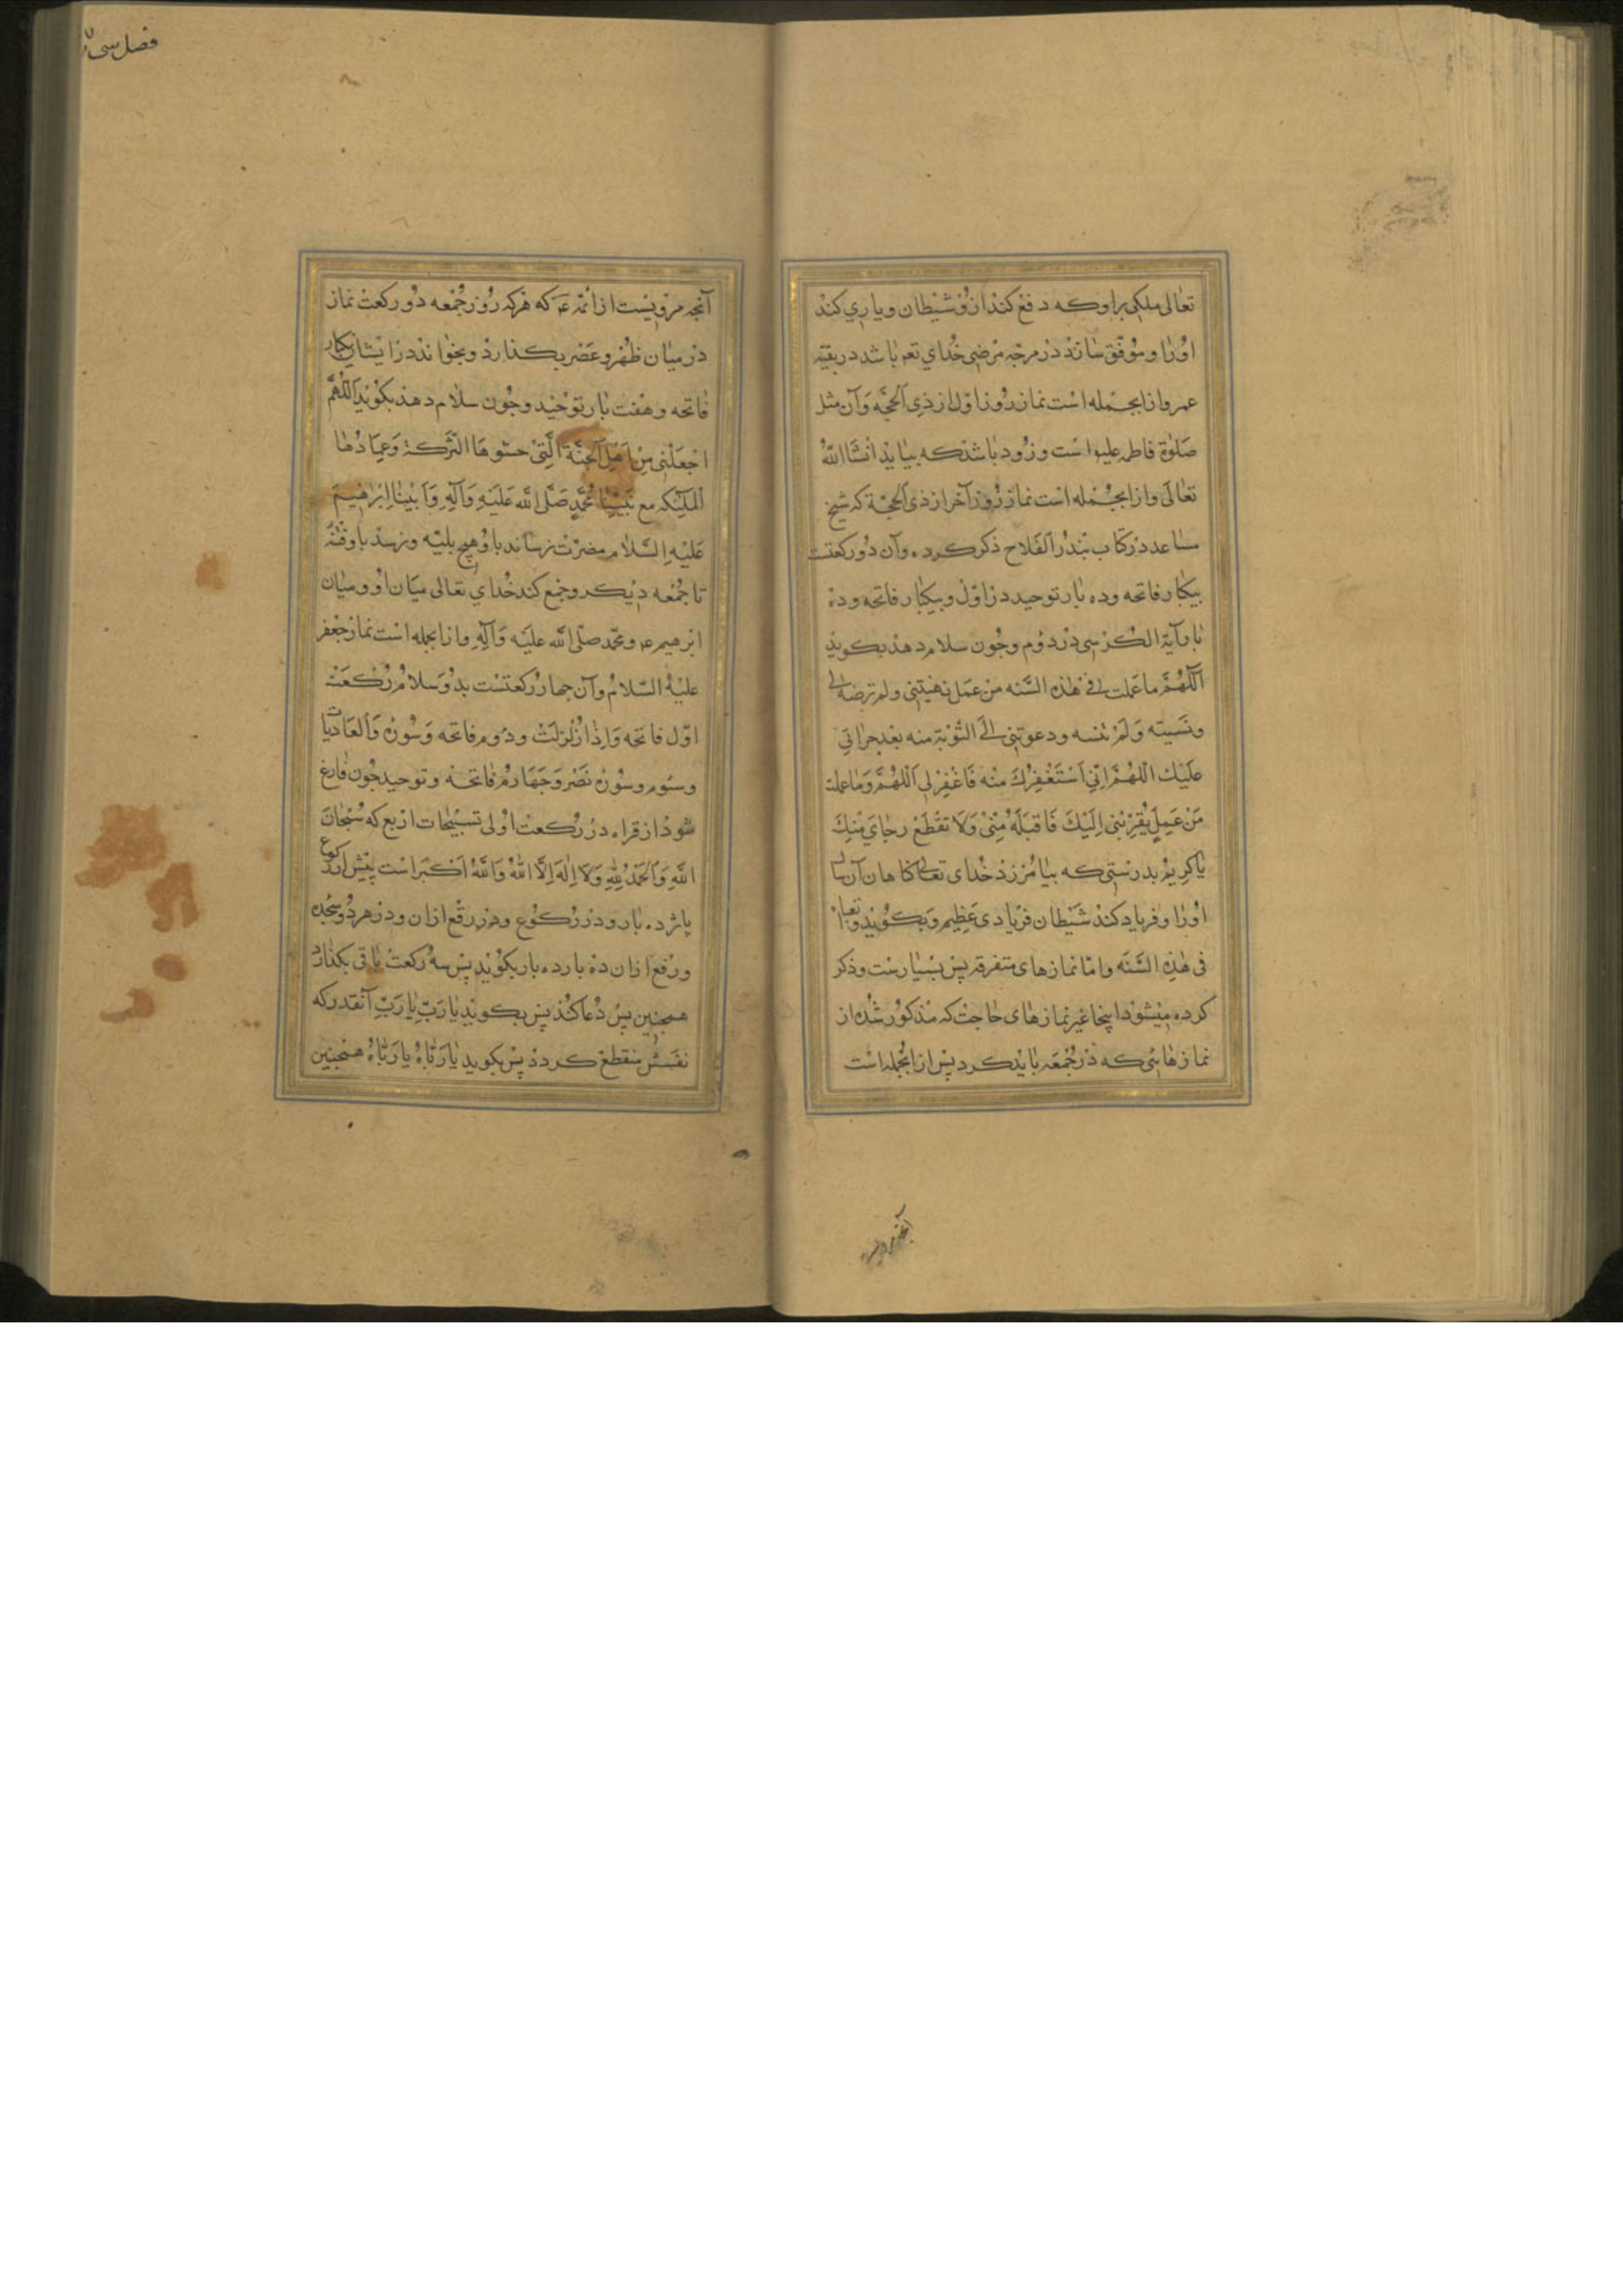 تعالی ملکی براو که دفع کند ازو شیطان و یاری کند
اورا و موفق سازد در هرچه مرضی خدای تعم باشد در بقیه
عمر و ازانجمله است نماز روز اول از ذی الحجه و آن مثل
صلوة فاطمه علیها است و زود باشد که بیاید انشا الله
تعالی و ازانجمله است نماز روز آخر از ذی الحجة که شیخ
ساعد در کتاب بیدر الفلاح ذکر کرده و آن دو رکعتست
بیکبار فاتحه و ده بار توحید در اول و بیکبار فاتحه و ده
بار آیة الکرسی در دوم و چون سلام دهد بکوید
اللهم ما عملت فی هذه السنه من عمل نهیتنی و لم ترضه لی
و نسیته و لم تنسه و دعوتنی الی التوبة منه بعد جراتی
علیک اللهم انی استغفرک منه فاغفر لی اللهم و ما عملت
من عمل یقربنی الیک فاقبله منی و لا تقطع رجای منک
یا کریم بدرستی که بیامرزد خدای تعالی کناهان آن سال
اورا و فریاد کند شیطان فریادی عظیم و بکوید و تعباه
فی هذه السنه و اما نمازهای متفرقه پس بسیارست و ذکر
کرده میشود اینجا غیر نمازهای حاجت که مذکور شده از
نمازهایی که در جمعه باید کرد پس ازانجمله است
آنچه مرویست
فصل سی
آنچه مرویست از ائمه ع که هرکه روز جمعه دو رکعت نماز
در میان ظهر و عصر بکذارد و بخواند در ایشان یکبار
فاتحه و هفت بار توحید و چون سلام دهد بکوید اللهم
اجعلنی من اهل الجنة التی حشوها البرکة و عمادها
الملیکه مع نبینا محمد صلی الله علیه و آله و ابینا ابرهیم
علیه السلام مضرت نرساند باو هیچ بلیه و نرسد باو فتنه
تا جمعه دیکر و جمع کند خدای تعالی میان او و میان
ابرهیم ع و محمد صلی الله علیه و آله و ازانجمله است نماز جعفر
علیه السلام و آن چهار رکعتست بدو سلام رکعت
اول فاتحه و اذا زلزلت و دوم فاتحه و سوره و العادیات
و سوم و سوره نصر و چهارم فاتحه و توحید چون فارغ
شود از قراه در رکعت اولی تسبیحات اربع که سبحان
الله و الحمد لله و لا اله الا الله و الله اکبر است پیش از رکوع
پانزده بار و در رکوع و در رفع ازان و در هر دو سجده
و رفع ازان ده بار ده بار بکوید پس سه رکعت باقی بکذارد
همچنین پس دعا کند پس بکوید یا رب یا رب آنقدر که
نفسش منقطع کردد پس بکوید یا رباه یا رباه همچنین